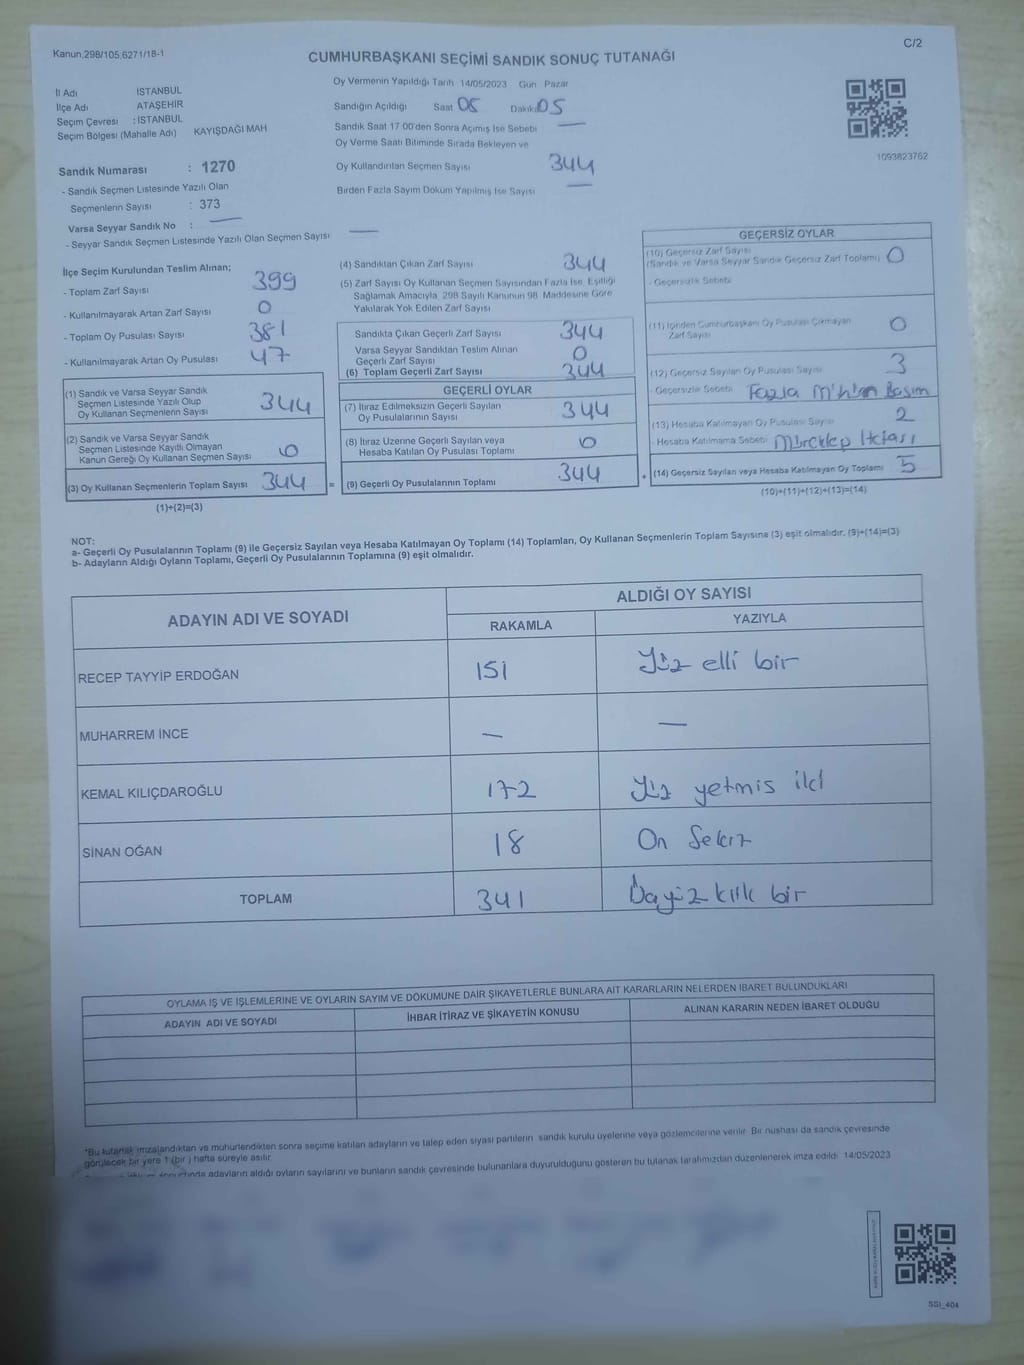 Kanun,298/105,6271/18-1
C/2
CUMHURBAŞKANI SEÇİMİ SANDIK SONUÇ TUTANAĞI
İl Adı İSTANBUL
İlçe Adı ATAŞEHİR
Seçim Çevresi : İSTANBUL
Seçim Bölgesi (Mahalle Adı) KAYIŞDAĞI MAH
Oy Vermenin Yapıldığı Tarih 14/05/2023 Gün Pazar
Sandığın Açıldığı Saat 05 Dakika 05
Sandık Saat 17:00'den Sonra Açılmış İse Sebebi —
Oy Verme Saati Bitiminde Sırada Bekleyen ve
Oy Kullandırılan Seçmen Sayısı 344
Birden Fazla Sayım Döküm Yapılmış İse Sayısı —
1093823762
Sandık Numarası : 1270
- Sandık Seçmen Listesinde Yazılı Olan
Seçmenlerin Sayısı : 373
Varsa Seyyar Sandık No : —
- Seyyar Sandık Seçmen Listesinde Yazılı Olan Seçmen Sayısı —
İlçe Seçim Kurulundan Teslim Alınan;
- Toplam Zarf Sayısı 399
- Kullanılmayarak Artan Zarf Sayısı 0
- Toplam Oy Pusulası Sayısı 381
- Kullanılmayarak Artan Oy Pusulası 47
(1) Sandık ve Varsa Seyyar Sandık
Seçmen Listesinde Yazılı Olup
Oy Kullanan Seçmenlerin Sayısı 344
(2) Sandık ve Varsa Seyyar Sandık
Seçmen Listesinde Kayıtlı Olmayan
Kanun Gereği Oy Kullanan Seçmen Sayısı 0
(3) Oy Kullanan Seçmenlerin Toplam Sayısı 344 =
(1)+(2)=(3)
(4) Sandıktan Çıkan Zarf Sayısı 344
(5) Zarf Sayısı Oy Kullanan Seçmen Sayısından Fazla İse, Eşitliği
Sağlamak Amacıyla, 298 Sayılı Kanunun 98. Maddesine Göre
Yakılarak Yok Edilen Zarf Sayısı
Sandıkta Çıkan Geçerli Zarf Sayısı 344
Varsa Seyyar Sandıktan Teslim Alınan
Geçerli Zarf Sayısı 0
(6) Toplam Geçerli Zarf Sayısı 344
GEÇERLİ OYLAR
(7) İtiraz Edilmeksizin Geçerli Sayılan
Oy Pusulalarının Sayısı 344
(8) İtiraz Üzerine Geçerli Sayılan veya
Hesaba Katılan Oy Pusulası Toplamı 0
(9) Geçerli Oy Pusulalarının Toplamı 344 +
GEÇERSİZ OYLAR
(10) Geçersiz Zarf Sayısı
(Sandık ve Varsa Seyyar Sandık Geçersiz Zarf Toplamı) 0
- Geçersizlik Sebebi
(11) İçinden Cumhurbaşkanı Oy Pusulası Çıkmayan
Zarf Sayısı 0
(12) Geçersiz Sayılan Oy Pusulası Sayısı 3
- Geçersizlik Sebebi Fazla Mühür Basım
(13) Hesaba Katılmayan Oy Pusulası Sayısı 2
- Hesaba Katılmama Sebebi Mürekkep Hatası
(14) Geçersiz Sayılan veya Hesaba Katılmayan Oy Toplamı 5
(10)+(11)+(12)+(13)=(14)
NOT:
a- Geçerli Oy Pusulalarının Toplamı (9) ile Geçersiz Sayılan veya Hesaba Katılmayan Oy Toplamı (14) Toplamları, Oy Kullanan Seçmenlerin Toplam Sayısına (3) eşit olmalıdır. (9)+(14)=(3)
b- Adayların Aldığı Oyların Toplamı, Geçerli Oy Pusulalarının Toplamına (9) eşit olmalıdır.
ADAYIN ADI VE SOYADI ALDIĞI OY SAYISI
RAKAMLA YAZIYLA
RECEP TAYYİP ERDOĞAN 151 Yüz elli bir
MUHARREM İNCE — —
KEMAL KILIÇDAROĞLU 172 Yüz yetmis iki
SİNAN OĞAN 18 On Sekiz
TOPLAM 341 Üçyüz kırk bir
OYLAMA İŞ VE İŞLEMLERİNE VE OYLARIN SAYIM VE DÖKÜMÜNE DAİR ŞİKAYETLERLE BUNLARA AİT KARARLARIN NELERDEN İBARET BULUNDUKLARI
ADAYIN ADI VE SOYADI İHBAR İTİRAZ VE ŞİKAYETİN KONUSU ALINAN KARARIN NEDEN İBARET OLDUĞU
*Bu tutanak imzalandıktan ve mühürlendikten sonra seçime katılan adayların ve talep eden siyasi partilerin sandık kurulu üyelerine veya gözlemcilerine verilir. Bir nüshası da sandık çevresinde
görülecek bir yere 1 (bir) hafta süreyle asılır.
adayların aldığı oyların sayılarını ve bunların sandık çevresinde bulunanlara duyurulduğunu gösteren bu tutanak tarafımızdan düzenlenerek imza edildi. 14/05/2023
SSI_404